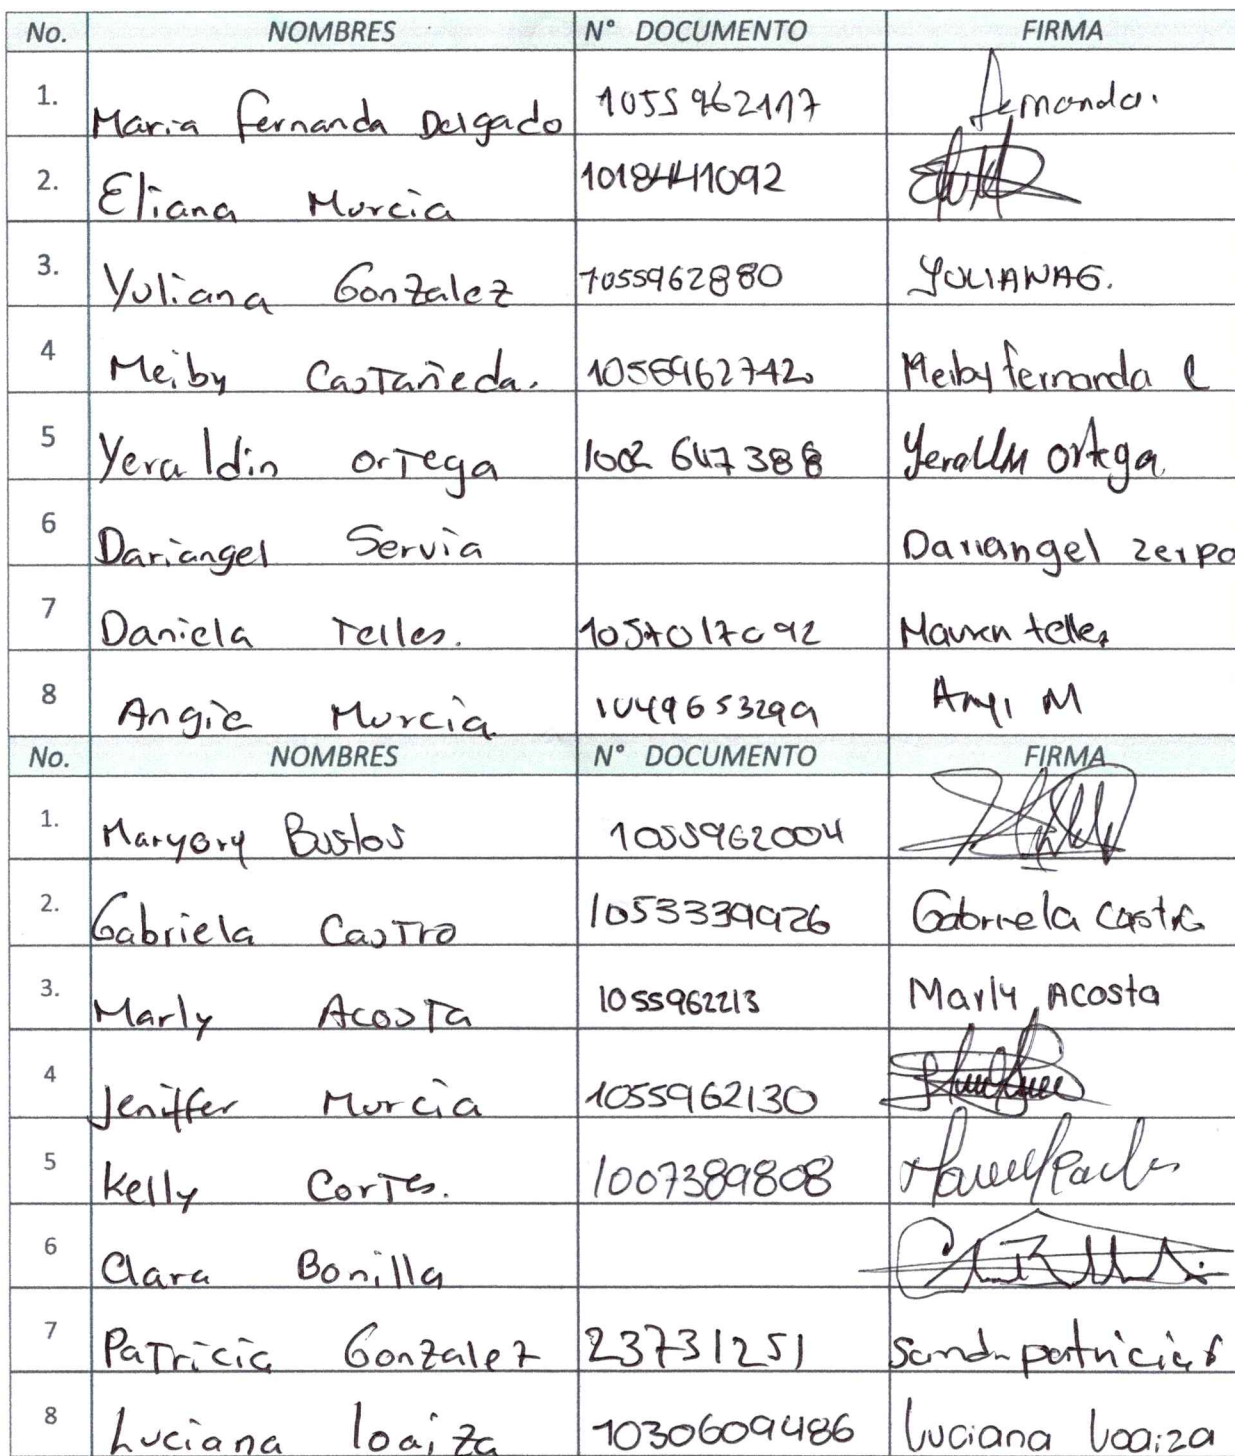 No. NOMBRES N° DOCUMENTO FIRMA
1. Maria Fernanda Delgado 1055962117 Fernanda.
2. Eliana Murcia 1018441092
3. Yuliana Gonzalez 1055962880 YULIANAG.
4 Meiby Castañeda. 1055962742 Meiby fernanda C
5 Yeraldin ortega 1002 647 388 Yeraldin ortega
6 Dariangel Servia Dariangel zerpa
7 Daniela Telles. 1057017092 telles
8 Angie Murcia 1049653299 Anyi M
No. NOMBRES N° DOCUMENTO FIRMA
1. Maryory Bustos 1055962004
2. Gabriela Castro 1053339926 Gabriela castro
3. Marly Acosta 1055962213 Marly Acosta
4 Jeniffer Murcia 1055962130
5 Kelly Cortes. 1007389808
6 Clara Bonilla
7 Patricia Gonzalez 23731251 patricia
8 Luciana loaiza 1030609486 luciana loaiza